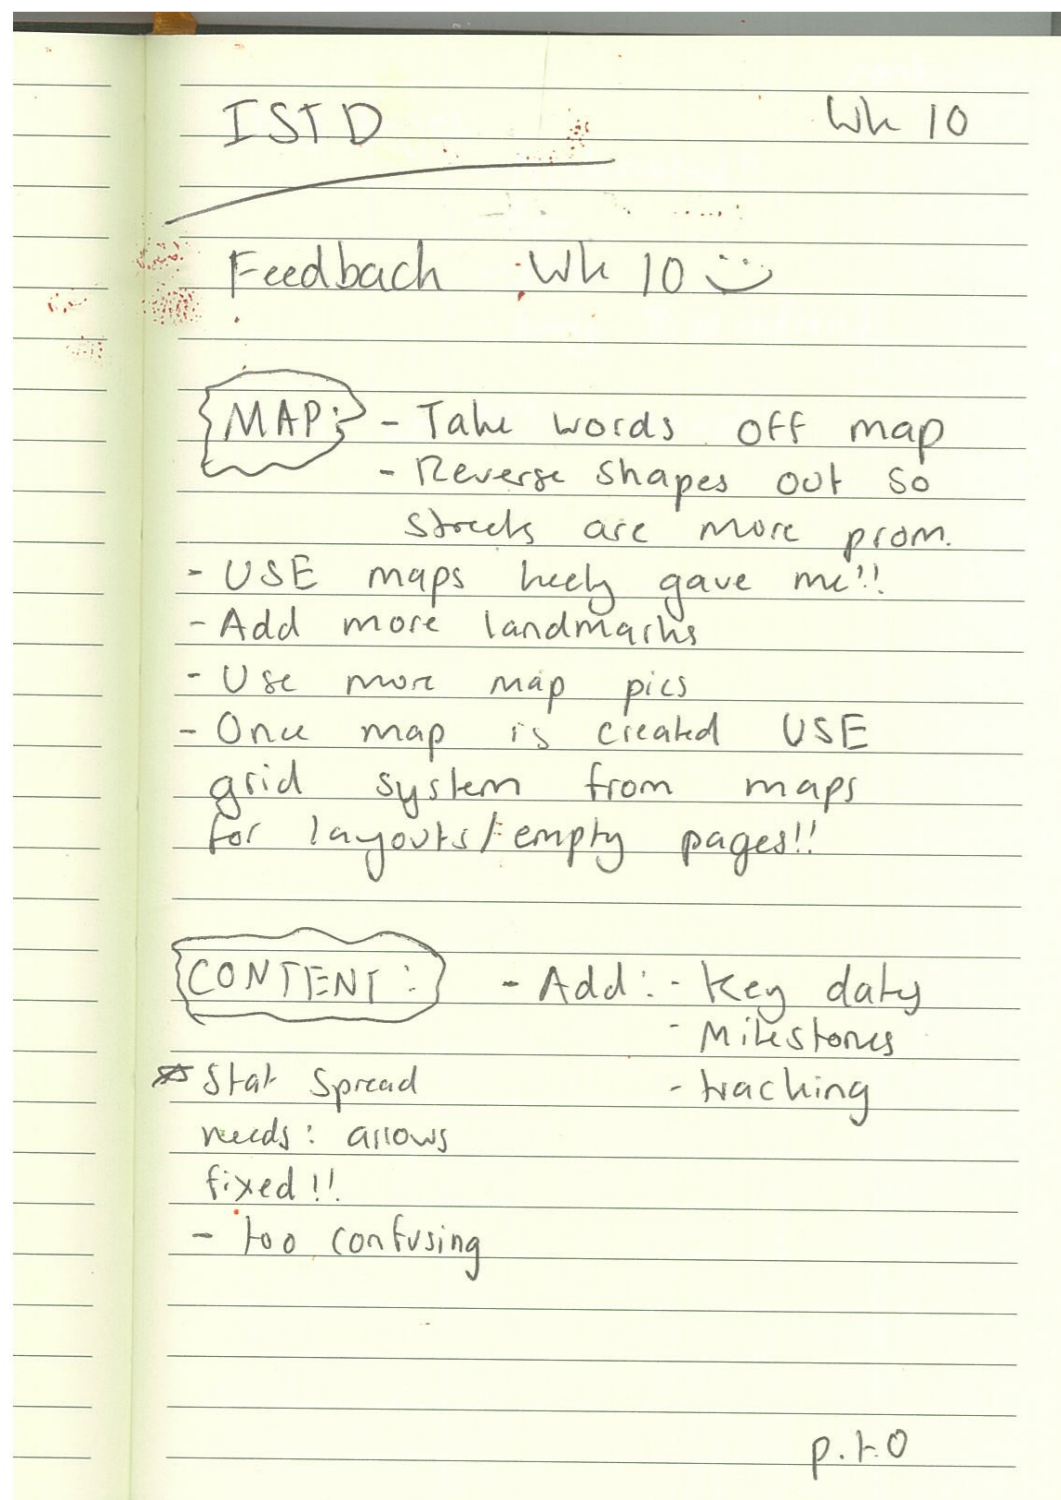 ISTD Wk 10
Feedback Wk 10
MAP: - Take words off map
- Reverse shapes out so
streets are more prom.
- USE maps keely gave me!!
- Add more landmarks
- Use more map pics
- Once map is created USE
grid system from maps
for layouts/empty pages!!
CONTENT: - Add: - Key dates
- Milestones
* Stat Spread - tracking
needs: arrows
fixed!!
- too confusing
p.t.O